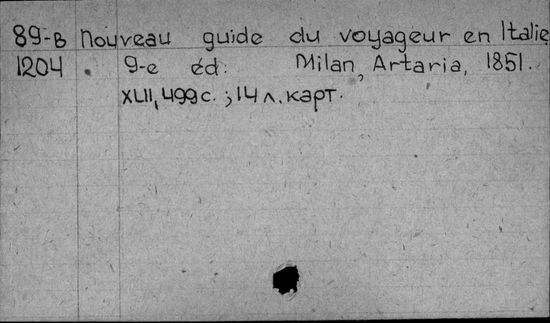 89-в Nouveau guide du voyageur en Italie
1204 . 9-e éd. Milan, Artaria, 1851.
XLII, 499 с. ; 14 л. карт.